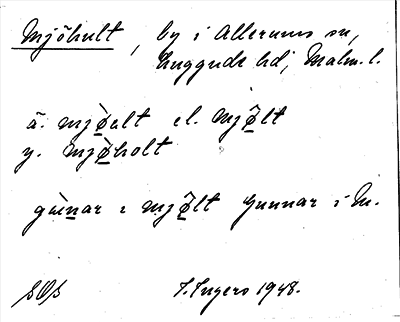 Mjöhult, by i Allerums sn,
Luggude hd, Malm. l.
ä. mjø̀ult el. mjø̂lt
y. mjø̀holt
gùnar i mjø̂lt Gunnar i M.
I. Ingers 1948.